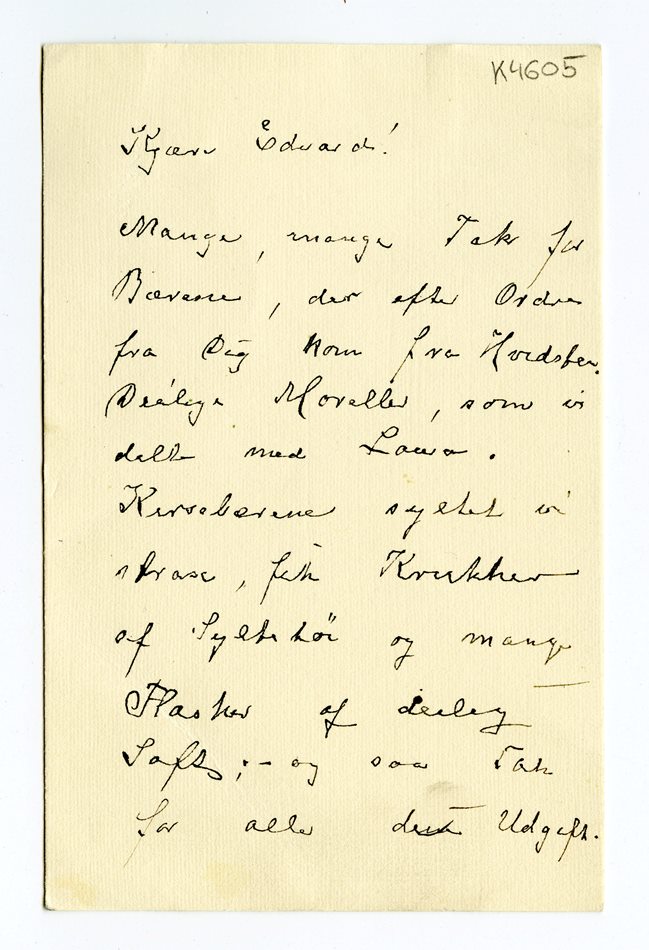 K4605
Kjære Edvard!
Mange, mange Tak for
Bærene, der efter Ordre
fra Dig kom fra Hvidsten.
Deilige Moreller, som vi
delte med Laura.
Kirsebærene syltet vi
strax, fik Krukker
af Syltetöi og mange
Flasker af deilig
Saft; - og saa Tak
for alle Udgift.